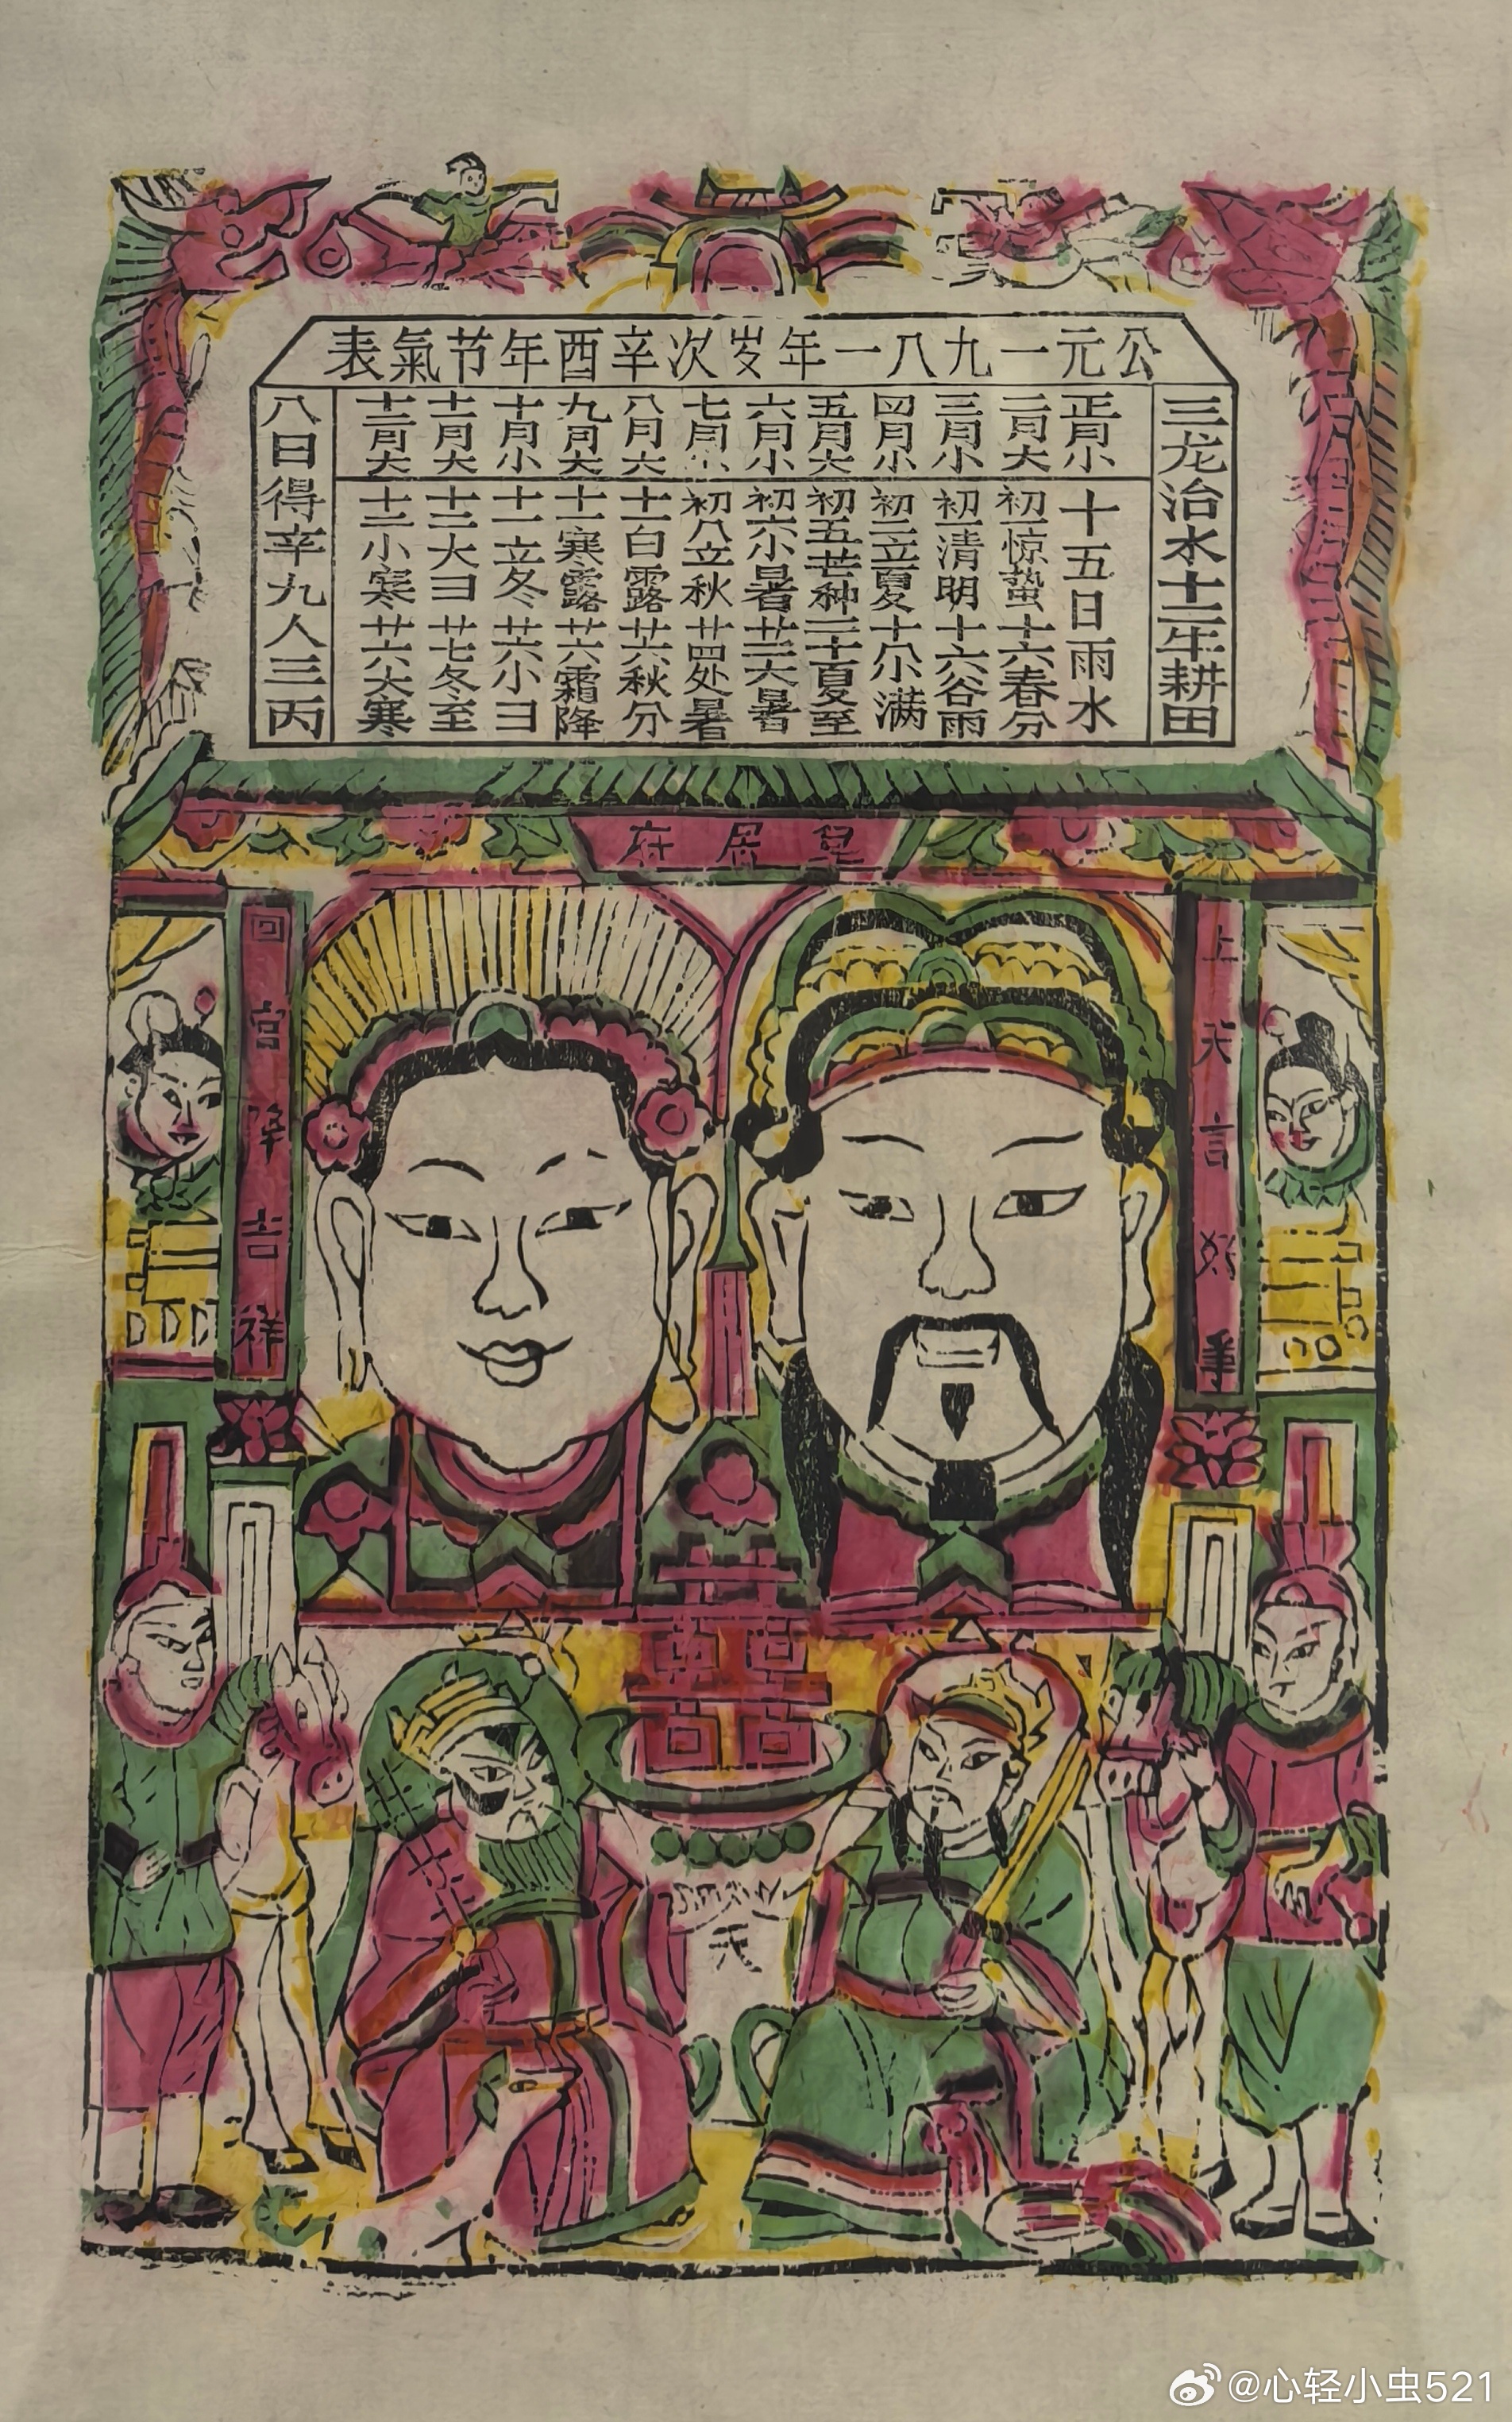 公元一九八一年岁次辛酉年节氣表
三龙治水十二牛耕田
正月小 十五日雨水
二月大 初一惊蛰十六春分
三月小 初一清明十六谷雨
四月小 初二立夏十八小满
五月大 初五芒种二十夏至
六月小 初六小暑廿二大暑
七月小 初八立秋廿四处暑
八月大 十一白露廿六秋分
九月大 十一寒露廿六霜降
十月小 十一立冬廿六小彐
十一月大 十二大彐廿七冬至
十二月大 十二小寒廿六大寒
八日得辛九人三丙
居府
上天言好事
回宫降吉祥
天
@心轻小虫521